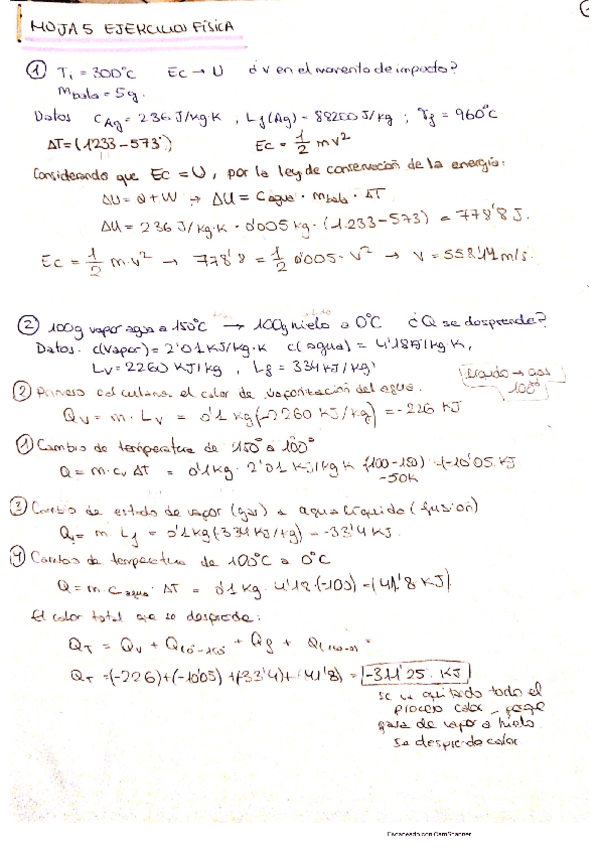 HOJA 5 EJERCICIOS FÍSICA
① T₁ = 300°C Ec → U ¿v en el momento de impacto?
m bala = 5g.
Datos C Ag = 236 J/kg·K, Lf(Ag) = 88200 J/kg; Tf = 960°C
ΔT = (1233 - 573) Ec = 1/2 mv²
Considerando que Ec = U, por la ley de conservación de la energía:
ΔU = Q + W → ΔU = C agua · m bala · ΔT
ΔU = 236 J/kg·K · 0'005 kg · (1.233 - 573) = 778'8 J.
Ec = 1/2 m·v² → 778'8 = 1/2 0'005 · v² → v = 558'14 m/s.
② 100g vapor agua a 150°C → 100g hielo a 0°C ¿Q se desprende?
Datos. c(vapor) = 2'01 KJ/kg·K c(agua) = 4'18 KJ/kg K,
Lv = 2260 KJ/kg, Lf = 334 KJ/kg
líquido → gas
100°
② Primero calculamos el calor de vaporización del agua.
Qv = m · Lv = 0'1 kg (-2260 KJ/kg) = -226 KJ
① Cambio de temperatura de 150° a 100°
Q = m·cv ΔT = 0'1 kg · 2'01 KJ/kg K (100-150) = (-10'05 KJ
-50K
③ Cambio de estado de vapor (gas) a agua líquido (fusión)
Q = m Lf = 0'1 kg (334 KJ/kg) = -33'4 KJ.
④ Cambios de temperatura de 100°C a 0°C
Q = m · C agua · ΔT = 0'1 kg · 4'18 (-100) = (41'8 KJ)
El calor total que se desprende:
QT = Qv + Q + Qf + Q =
QT = (-226) + (-10'05) + (33'4) + (41'8) = -311'25 KJ
se va quitando todo el
proceso calor
pasa de vapor a hielo
se desprende calor
Escaneado con CamScanner